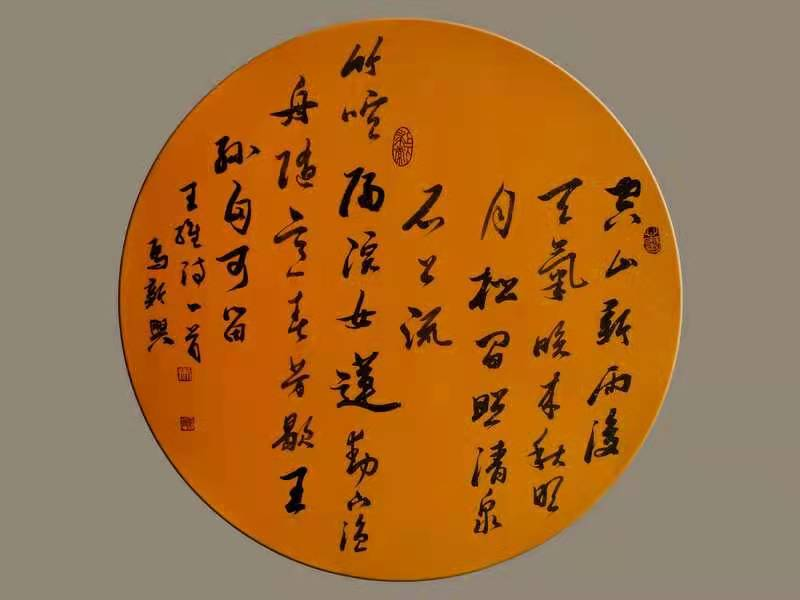 空山新雨後
天氣晚来秋明
月松間照清泉
石上流
竹喧歸浣女蓮動下漁
舟隨意春芳歇王
孫自可留
王維詩一首
馬新興